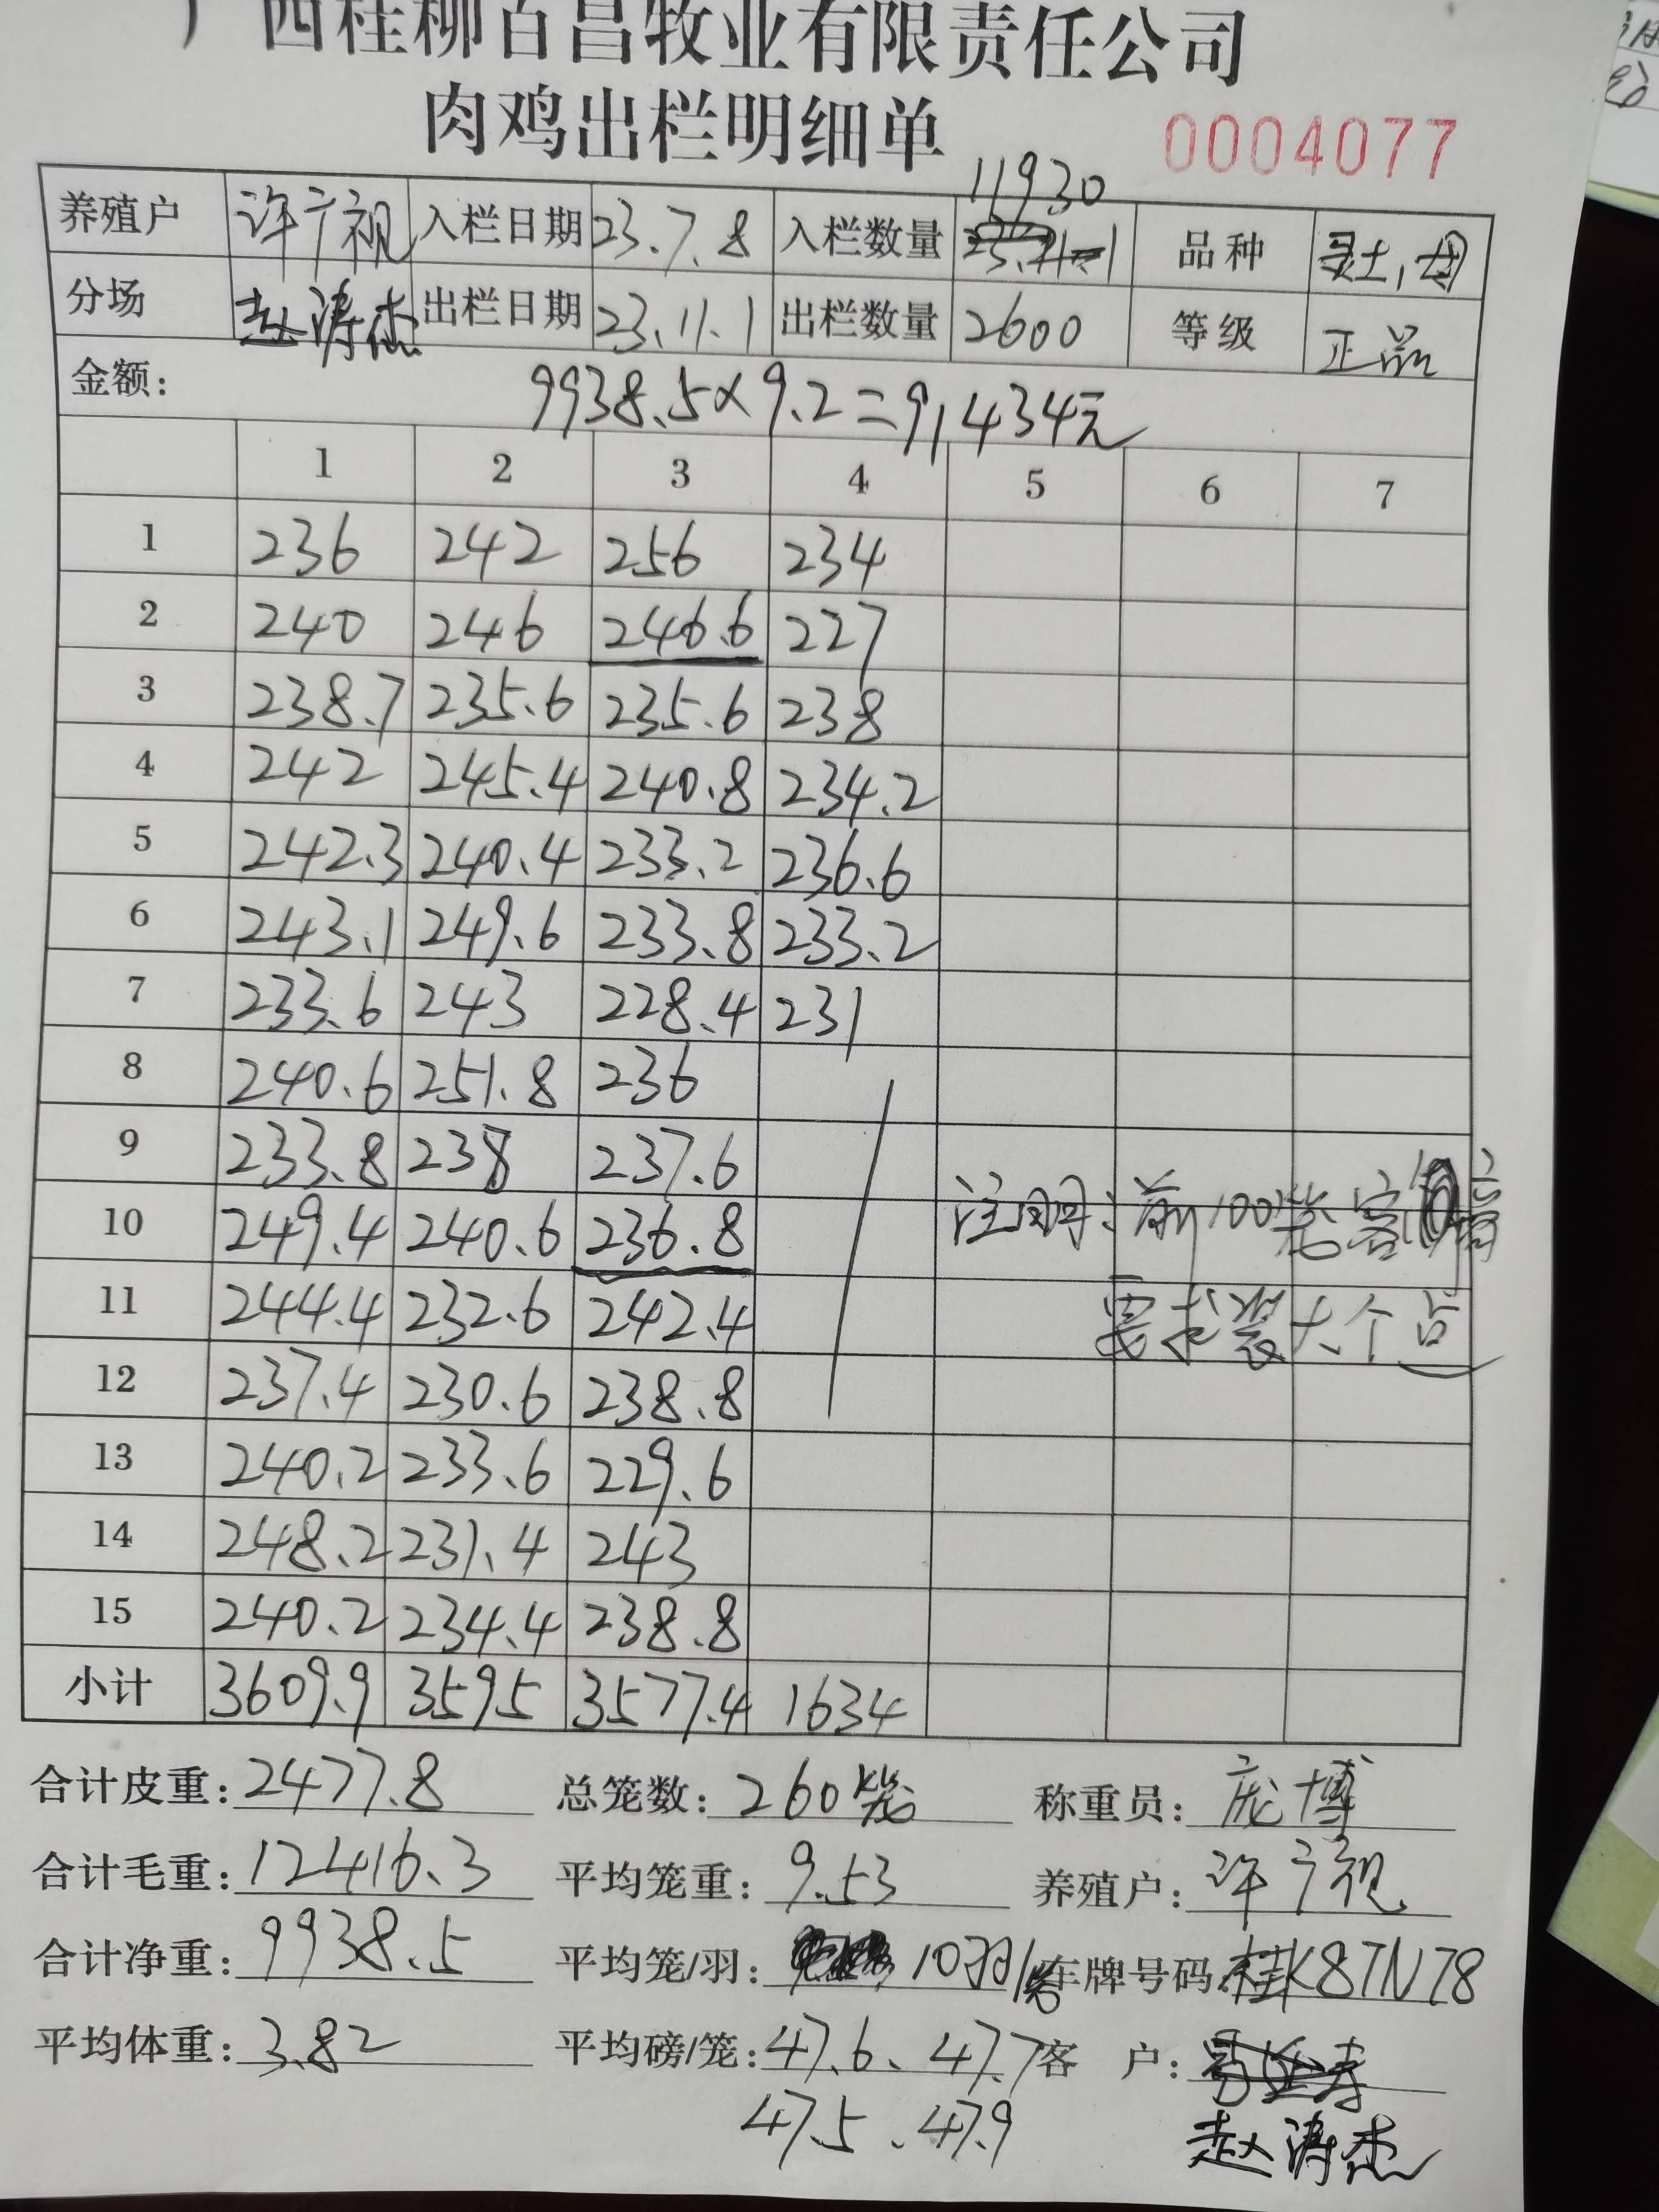 广西桂柳百昌牧业有限责任公司
肉鸡出栏明细单 0004077
11930
养殖户 许广视 入栏日期 23.7.8 入栏数量 品种 灵土,母
分场 赵涛杰 出栏日期 23.11.1 出栏数量 2600 等级 正品
金额: 9938.5×9.2=91434元
1 2 3 4 5 6 7
1 236 242 256 234
2 240 246 246.6 227
3 238.7 235.6 235.6 238
4 242 245.4 240.8 234.2
5 242.3 240.4 233.2 236.6
6 243.1 249.6 233.8 233.2
7 233.6 243 228.4 231
8 240.6 251.8 236
9 233.8 238 237.6
10 249.4 240.6 236.8 注明:前100笼客户
11 244.4 232.6 242.4 要求装大个点
12 237.4 230.6 238.8
13 240.2 233.6 229.6
14 248.2 231.4 243
15 240.2 234.4 238.8
小计 3609.9 3595 3577.4 1634
合计皮重:2477.8 总笼数:260笼 称重员:庞博
合计毛重:12416.3 平均笼重:9.53 养殖户:许广视
合计净重:9938.5 平均笼/羽:10羽/笼 车牌号码:桂K87N78
平均体重:3.82 平均磅/笼:47.6、47.7 客 户:
47.5、47.9 赵涛杰